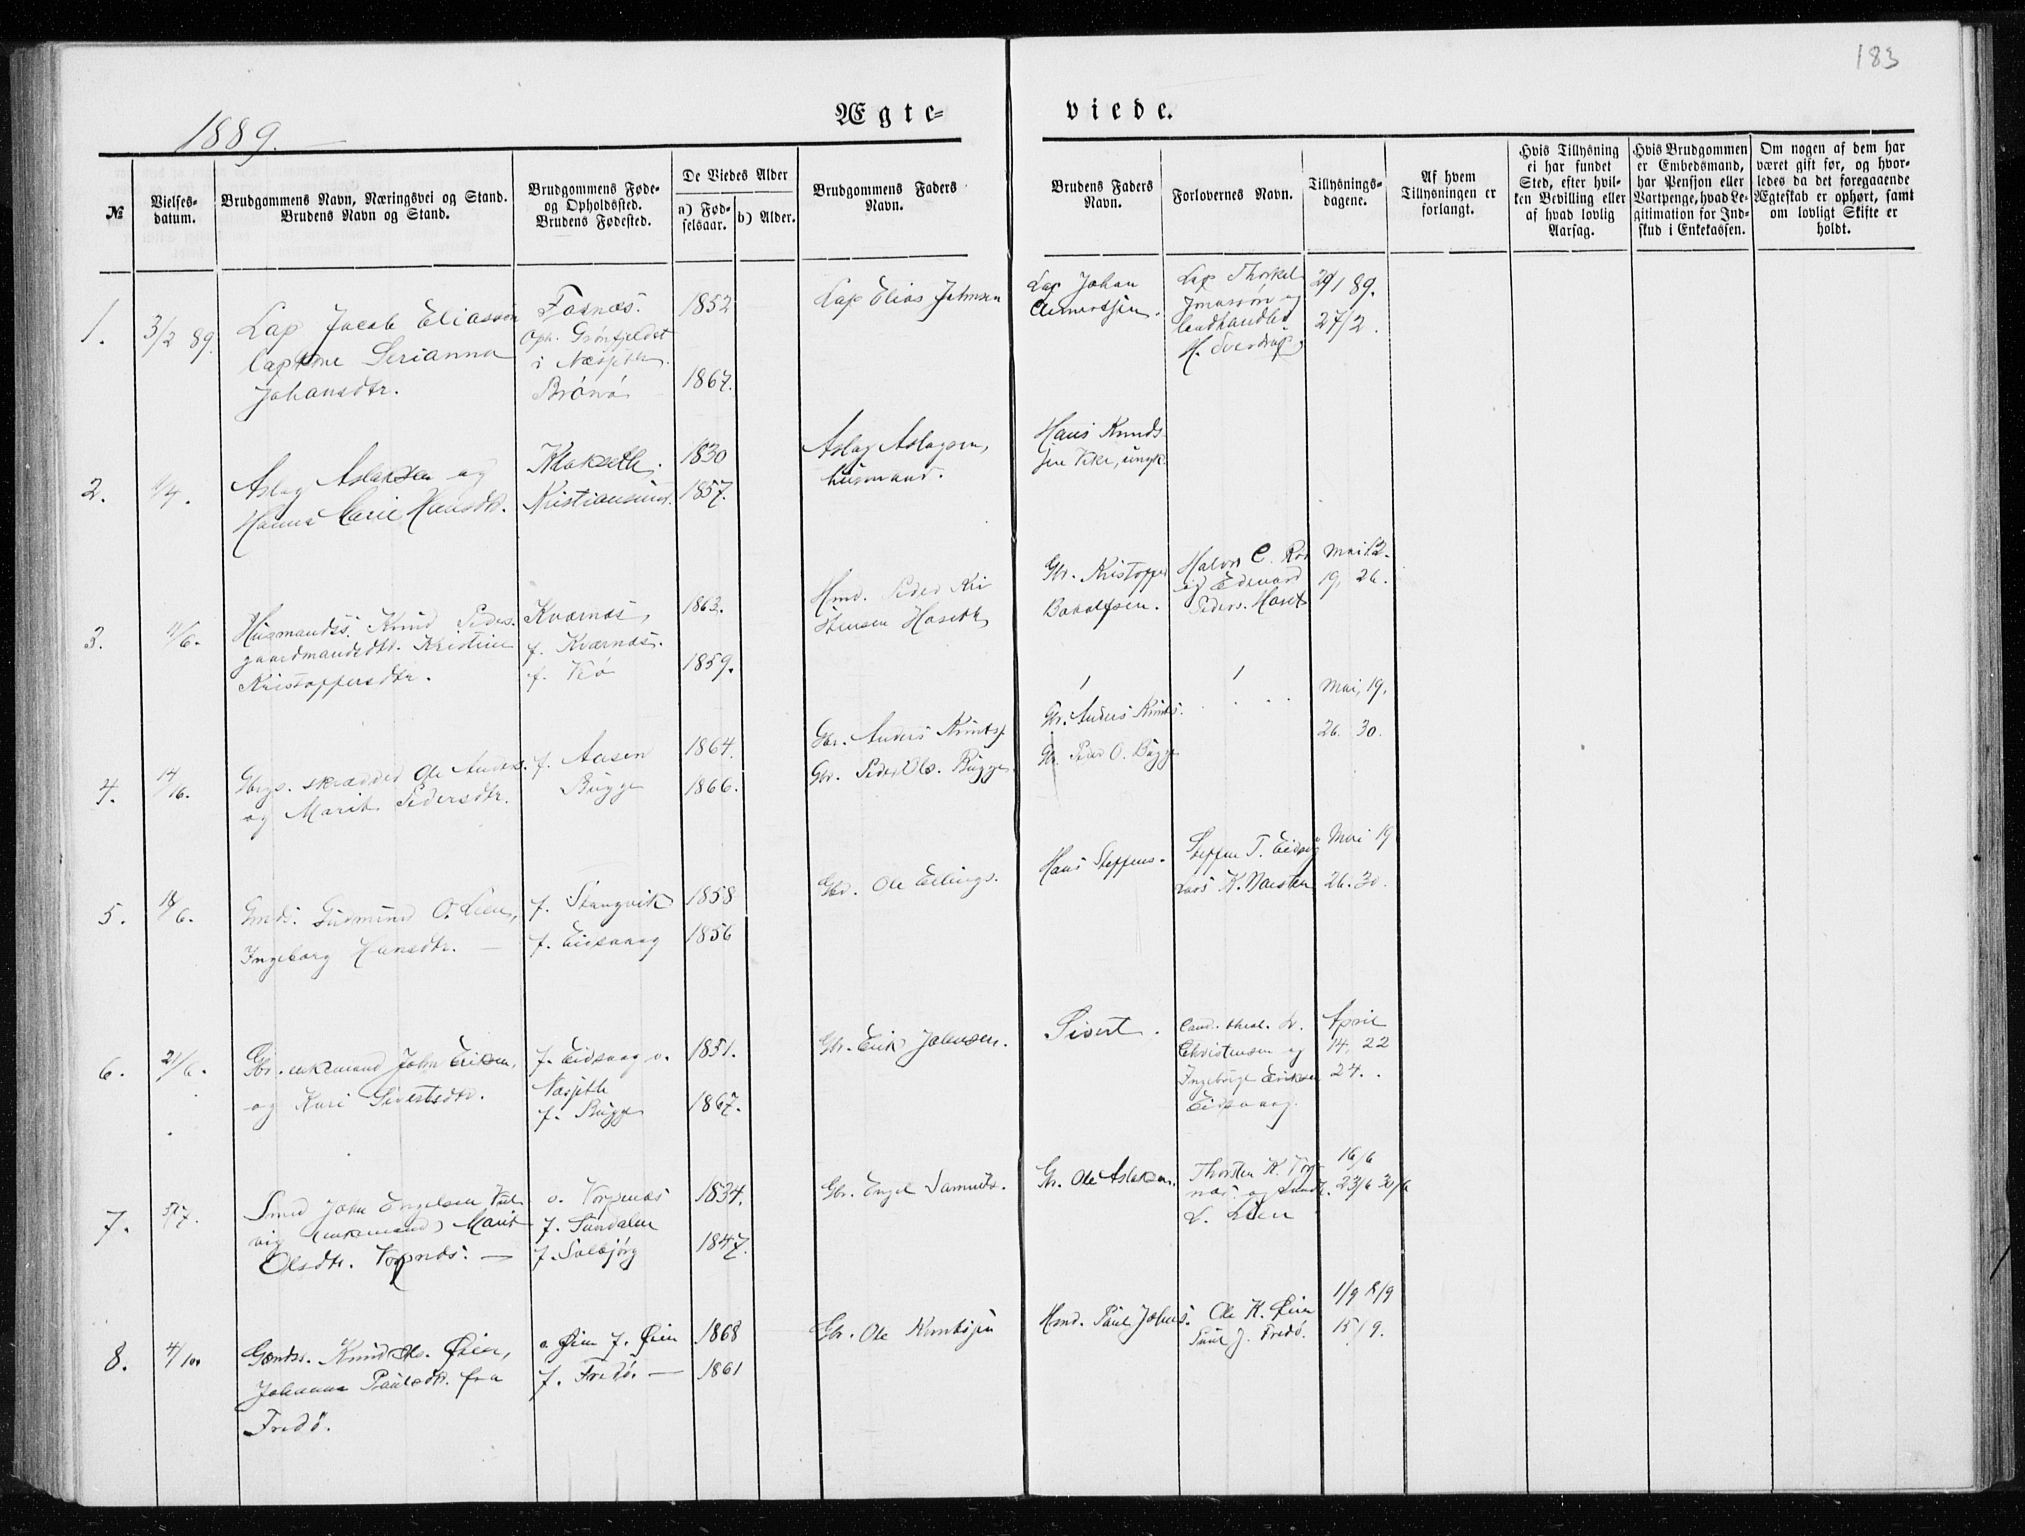 183
1889.
Ægte-
viede.
№
Vielses-
datum.
Brudgommens Navn, Næringsvei og Stand.
Brudens Navn og Stand.
Brudgommens Føde-
og Opholdssted.
Brudens Fødested.
De Viedes Alder
a) Fød-
selsaar.
b) Alder.
Brudgommens Faders
Navn.
Brudens Faders
Navn.
Forlovernes Navn.
Tillysnings-
dagene.
Af hvem
Tillysningen er
forlangt.
Hvis Tillysning
ei har fundet
Sted, efter hvil-
ken Bevilling eller
af hvad lovlig
Aarsag.
Hvis Brudgommen
er Embedsmand,
har Pension eller
Vartpenge, hvad Le-
gitimation for Ind-
skud i Enkekassen.
Om nogen af dem har
været gift før, og hvor-
ledes da det foregaaende
Ægteskab er ophørt, samt
om lovligt Skifte er
holdt.
1.
3/2 89.
Lap Jacob Eliassen
Serianna
Johansdtr.
Fosnæs.
Oph. Grønfjeldet
i
Brønø
1852
1867.
Lap Elias Johnsen
Lap Johan
Lap Thorkel
og
Landhandler
H. Sverdrup
29/1 89.
27/2.
2.
/4.
Aslag Aslaksen og
Hanna Marie Hansdtr.
Kristiansund.
1830
1857.
Aslag Aslagsen,
husmand.
Hans Knuds-
sen
3.
/6.
Husmandss. Knud Peders.
gaardmandsdtr. Kristine
Kristoffersdtr.
Kvernæs,
f. Kvernæs.
f.
1863.
1859.
Hmd. Peder Kri
stensen Haseth
Gbr. Kristoffer
Halvor C.
og Edevard
Peders.
Mai 12.
19, 26.
4.
14/6.
skrædder Ole Anders.
og Marit Pedersdtr.
f. Aasen
Bugge
1864.
1866.
Gbr. Anders Knuts.
Gbr. Peder Ols. Bugge
Gbr. Anders Knuts.
Gbr. Peder O. Bugge
Mai, 19.
26. 30.
5.
18/6.
Gmds. Gudmund O. Lien,
Ingeborg Hansdtr. —
f. Stangvik
f. Eidsvaag
1858
1856
Gbr. Ole Erlings.
Hans Steffens.
Steffen T.
Lars K.
Mai 19
26. 30.
6.
21/6.
Gbr. enkemand John Eriksen,
og Kari Sivertsdtr.
f. Eidsvaag o.
f. Bugge
1851.
1867.
Gbr. Erik Johnsen.
Sivert.
Cand. theol.
Christensen og
Ingebrigt Eriksen
Eidsvaag.
April
14, 22
24.
7.
5/7.
Smed John Engelsen
(enkemand) Marit
Olsdtr. Vorpnæs. —
o. Vorpnæs
f. Sundalen
f. Solbjørg
1834.
1847.
Gbr. Engel
Gbr. Ole Aslaksen.
Thorsten K. Vorp
næs og
L. Lien
16/6
23/6 30/6
8.
4/10.
Knud Ols. Øien,
Johanna Paulsdtr. fra
Fredø.
o. Øien f. Øien
f. Fredø. —
1868
1861
Gbr. Ole Knutsen
Hmd. Paul Johns.
Ole K. Øien
Paul J. Fredø.
1/9 8/9
15/9.